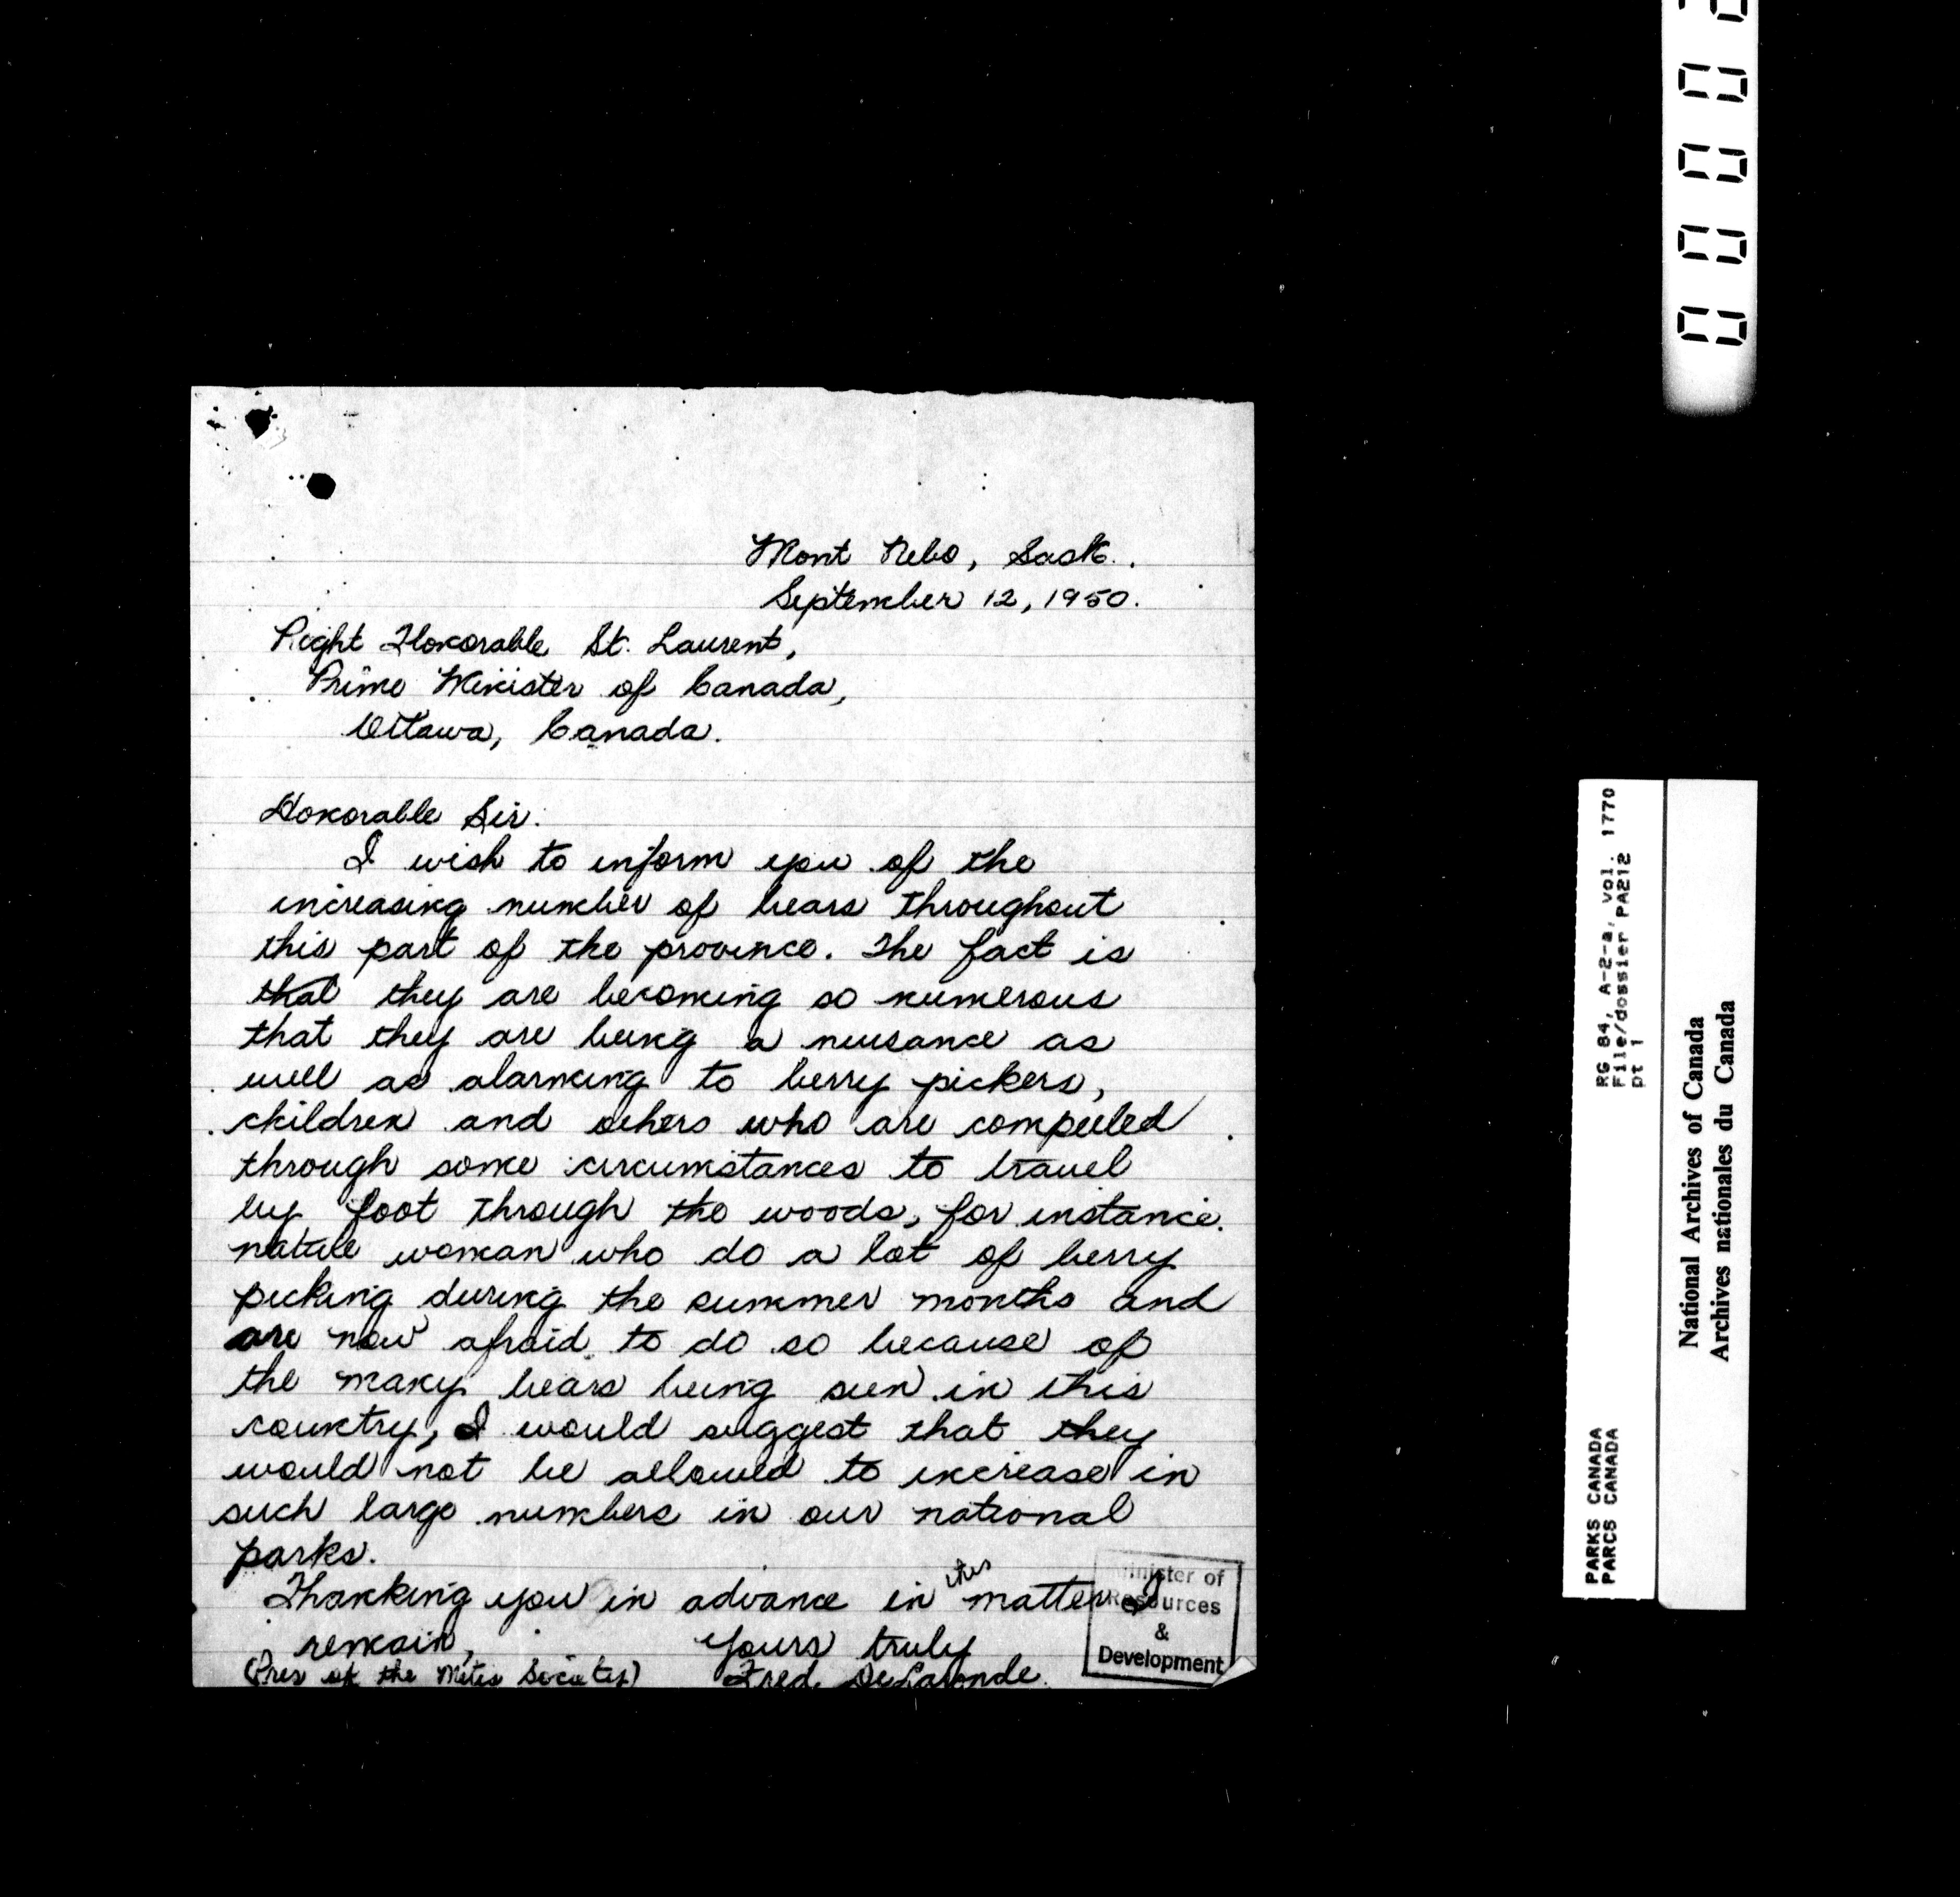 Mont Nebo, Sask.
September 12, 1950.
Right Honorable St. Laurent,
Prime Minister of Canada,
Ottawa, Canada.
Honorable Sir:
I wish to inform you of the
increasing number of bears throughout
this part of the province. The fact is
that they are becoming so numerous
that they are being a nuisance as
well as alarming to berry pickers,
children and others who are compelled
through some circumstances to travel
by foot through the woods, for instance.
native woman who do a lot of berry
picking during the summer months and
are now afraid to do so because of
the many bears being seen in this
country, I would suggest that they
would not be allowed to increase in
such large numbers in our national
parks.
Thanking you in advance in this matter I
remain, Yours truly
(Pres of the Metis Society) Fred DeLaronde.
Minister of
Resources
&
Development
0 0 0 0
RG 84, A-2-a, vol. 1770
File/dossier PA212
pt 1
PARKS CANADA
PARCS CANADA
National Archives of Canada
Archives nationales du Canada